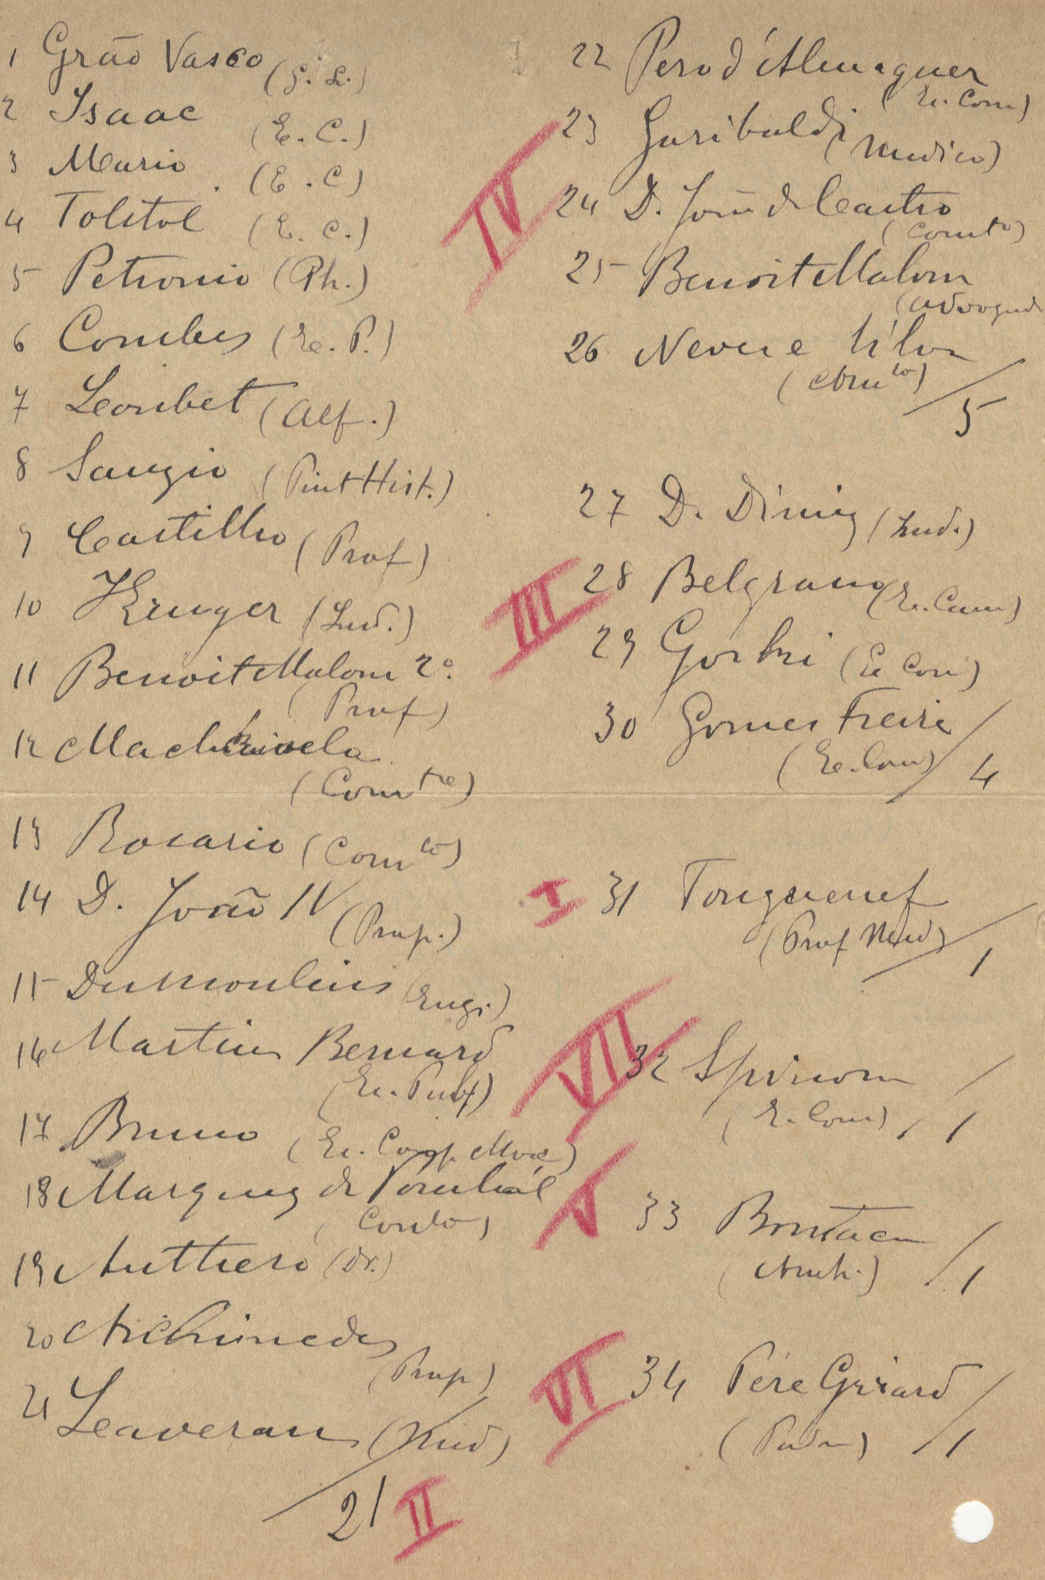 1 Grão Vasco (G. L.)
2 Isaac (E. C.)
3 Mario (E. C)
4 Tolstol (E. C.)
5 Petronio (Ph.)
6 Combes (Ee. P.)
7 Loubet (Alf.)
8 Sanzio (Pint Hist.)
9 Castilho (Prof)
10 Kruger (Ind.)
11 Benoit Malom 2º
(Prof)
12 Mach
(Com te)
13 Rosario (Com te)
14 D. João IV (Prop.)
15 Dumoulins (Engi.)
16 Martins Bernard
(Ee. Pubf)
17 Bruno (Ee. Com.
18 Marquez de Pombal
19 Anthero (Dr.)
20 Archimedes
(Prop)
21 Leaveran (Ind)
21 II
22 Pero d'Alenquer
(Ee. Com)
23 Garibaldi (Medico)
IV
24 D. João de Castro
(Com to)
25 Benoit Malom
(Advogad
26 Neven e Silva
5
27 D. Diniz (Ind.)
III
28 Belgrano (Ee. Com)
29 Gorki (Ee Com)
30 Gomes Freire
(Ee. Com) 4
I
31 Tourguenef
(Prof Med) 1
VII
32 Spinom
(E. Com) 1
V
33
1
VI
34 Pére Girard
1